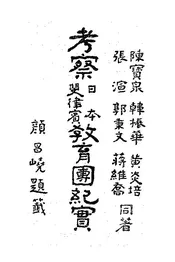 陳寶泉 韓振華 黃炎培
張渲 郭秉文 蔣維喬 同著
考察日本斐律賓教育團紀實
顏昌嶢題籤